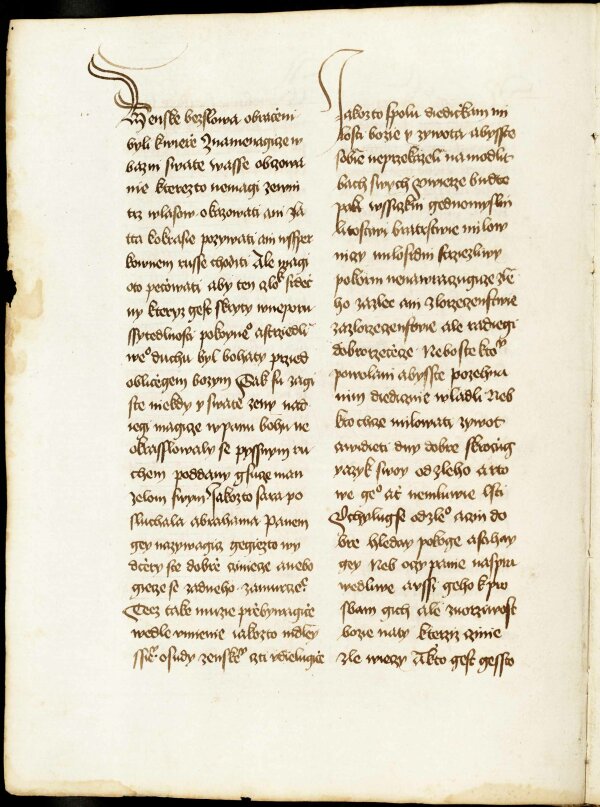 Zenske bezslowa obraceni
byli kwiere Znamenagicze w
bazni swate wasse obcowa
nie kterezto nemagi zewni
trz wlasow okazowati ani zla
tta kokrasie pozywati ani wsser
kownem russe choditi Ale magi
oto pecowati aby ten czlok srdec
ny kteryz gest skryty wneporu
ssytedlnosti pokoyneo astrzedli
weo duchu byl bohaty przed
obliczegem bozym Tak su zagi
ste niekdy y swate zeny nad
iegi magicze wpanu bohu ne
okrasslowaly se pyssnym ru
chem poddany gsucze man
zelom swym Jakozto sara po
sluchala abrahama Panem
gey nazywagicz gegiezto wy
dcery ste dobrze czinicze anebo
giecze se zadneho zamucze
Teez take muzie przebywagicze
wedle vmienie iakozto mdley
ssie osudy zenske czti vdielugicze
Jakozto spolu diedickam mi
losti bozie y zywota abysste
sobie neprzekazeli namodlit
bach swych Owierze budte
pak wssickni gednomyslni
litostiwi bratrstwie milow
niczy milosrdni strziezliwy
pokorni nenawraczugicze zle
ho zazlee ani zlorzeczenstwie
zazlorzeczenstwie ale radiegi
dobrorzecze Neboste ktoy
powolani abysste pozehna
nim diedicznie wladli Neb
kto chcze milowati zywot
awidieti dny dobre skrocug
yazyk swoy od zleho arto
we geo at nemluwie lsti
Vchylugse odzleo aczin do
bre hleday pokoge asahay
gey Neb oczy panie naspra
wedliwe aussi geho kpro
sbam gich ale zuorziwost
bozie naty kterzyz czinie
zle wieczy Akto gest gessto